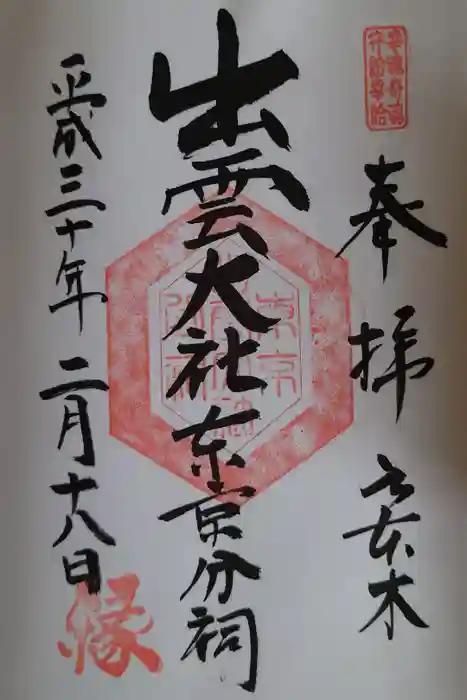 奉拝 六本木
出雲大社東京分祠
平成三十年 二月十八日
縁